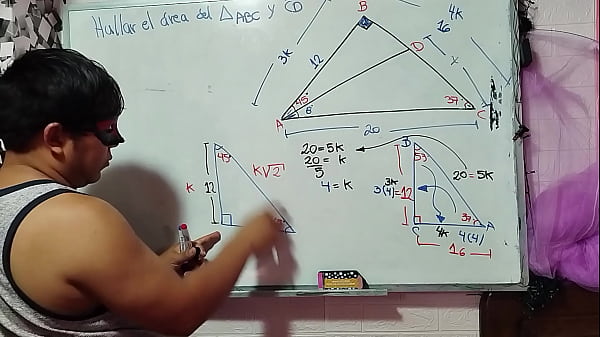 Hallar el área del △ABC y CD
B
4K
16
D
3K
12
x
45°
8°
37
A
C
20
20=5K
20/5 = K
4=K
45
K
12
K√2
B
53
20=5K
3K
3(4)=12
37
C
4K
4(4)
A
16